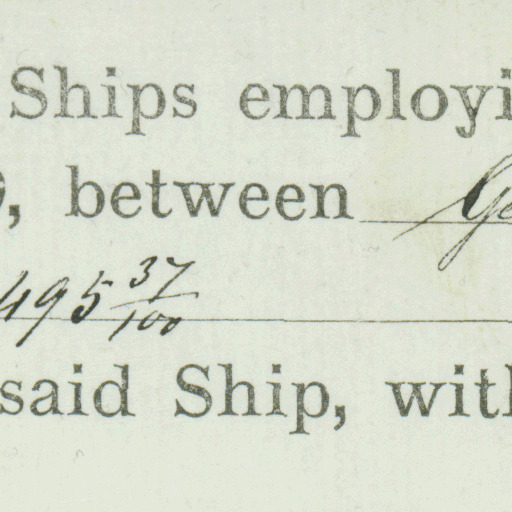 Ships employi
, between Ge
495 37/100
said Ship, with